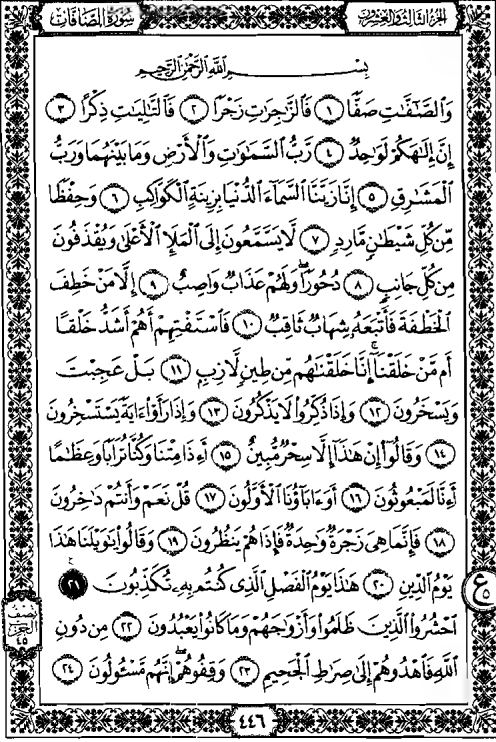 سُورَةُ الصَّافَّاتِ
الجُزْءُ الثَّالِثُ وَالعِشْرُونَ
بِسْمِ اللَّهِ الرَّحْمَٰنِ الرَّحِيمِ
وَالصَّٰفَّٰتِ صَفًّا ١ فَالزَّٰجِرَٰتِ زَجْرًا ٢ فَالتَّٰلِيَٰتِ ذِكْرًا ٣
إِنَّ إِلَٰهَكُمْ لَوَٰحِدٌ ٤ رَّبُّ السَّمَٰوَٰتِ وَالْأَرْضِ وَمَا بَيْنَهُمَا وَرَبُّ
الْمَشَٰرِقِ ٥ إِنَّا زَيَّنَّا السَّمَاءَ الدُّنْيَا بِزِينَةٍ الْكَوَاكِبِ ٦ وَحِفْظًا
مِّن كُلِّ شَيْطَٰنٍ مَّارِدٍ ٧ لَّا يَسَّمَّعُونَ إِلَى الْمَلَإِ الْأَعْلَىٰ وَيُقْذَفُونَ
مِن كُلِّ جَانِبٍ ٨ دُحُورًا ۖ وَلَهُمْ عَذَابٌ وَاصِبٌ ٩ إِلَّا مَنْ خَطِفَ
الْخَطْفَةَ فَأَتْبَعَهُ شِهَابٌ ثَاقِبٌ ١٠ فَاسْتَفْتِهِمْ أَهُمْ أَشَدُّ خَلْقًا
أَم مَّنْ خَلَقْنَا ۚ إِنَّا خَلَقْنَٰهُم مِّن طِينٍ لَّازِبٍ ١١ بَلْ عَجِبْتَ
وَيَسْخَرُونَ ١٢ وَإِذَا ذُكِّرُوا لَا يَذْكُرُونَ ١٣ وَإِذَا رَأَوْا ءَايَةً يَسْتَسْخِرُونَ
١٤ وَقَالُوا إِنْ هَٰذَا إِلَّا سِحْرٌ مُّبِينٌ ١٥ أَءِذَا مِتْنَا وَكُنَّا تُرَابًا وَعِظَٰمًا
أَءِنَّا لَمَبْعُوثُونَ ١٦ أَوَءَابَاؤُنَا الْأَوَّلُونَ ١٧ قُلْ نَعَمْ وَأَنتُمْ دَٰخِرُونَ
١٨ فَإِنَّمَا هِيَ زَجْرَةٌ وَٰحِدَةٌ فَإِذَا هُمْ يَنظُرُونَ ١٩ وَقَالُوا يَٰوَيْلَنَا هَٰذَا
يَوْمُ الدِّينِ ٢٠ هَٰذَا يَوْمُ الْفَصْلِ الَّذِي كُنتُم بِهِ تُكَذِّبُونَ ٢١
احْشُرُوا الَّذِينَ ظَلَمُوا وَأَزْوَٰجَهُمْ وَمَا كَانُوا يَعْبُدُونَ ٢٢ مِن دُونِ
اللَّهِ فَاهْدُوهُمْ إِلَىٰ صِرَٰطِ الْجَحِيمِ ٢٣ وَقِفُوهُمْ ۖ إِنَّهُم مَّسْئُولُونَ ٢٤
ع ٥
نصف
الحزب
٤٥
٤٤٦